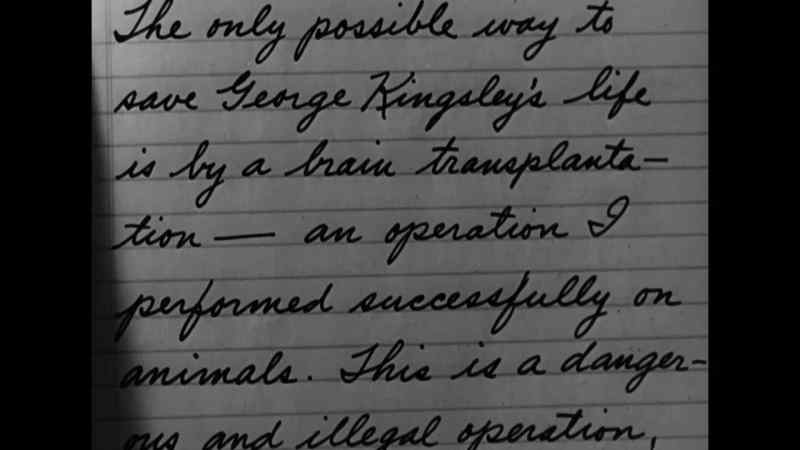 The only possible way to
save George Kingsley's life
is by a brain transplanta–
tion — an operation I
performed successfully on
animals. This is a danger–
ous and illegal operation,